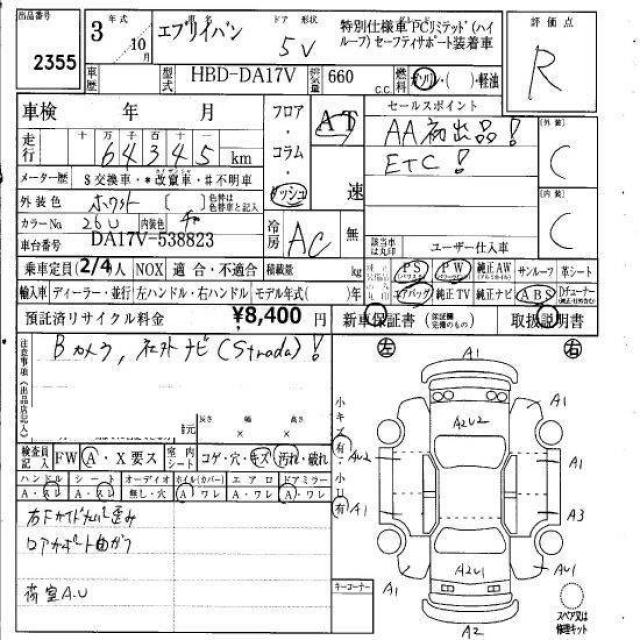 出品番号
2355
3 年式 10月
車名 エブリイバン
ドア 形状 5V
グレード 特別仕様車PCリミテッド(ハイルーフ)セーフティサポート装着車
評価点
R
車歴
型式 HBD-DA17V
排気量 660 c.c.
燃料 ガソリン・( )・軽油
車検 年 月
走行 十万千百十一 64345 km
メーター歴 $交換車・*改竄車・#不明車
外装色 ホワイト [ ] 色替は色替車と記入
カラーNo 26U 内装色
車台番号 DA17V-538823
フロア・コラム・ダッシュ
AT
速
冷房 AC 無
セールスポイント
AA初出品!
ETC!
該当車は丸印 ユーザー仕入車
[外装] C
[内装] C
乗車定員 2/4人 NOX 適合・不適合 積載量 kg
PS PW 純正AW サンルーフ 革シート
輸入車 ディーラー・並行 左ハンドル・右ハンドル モデル年式( )年
エアバッグ 純正TV 純正ナビ ABS Dチューナー
預託済リサイクル料金 ¥8,400 円
新車保証書 (保証記録完備のもの) 取扱説明書
注意事項(出品店記入)
Bカメラ, 社外ナビ(Strada)!
長さ 幅 高さ
× ×
検査員記入 FW A・X要ス 室内シート コゲ・穴・キズ 汚れ・破れ
ハンドル シート オーディオ ホイル(カバー) エアロ ドアミラー
A・スレ A・スレ 無し・穴 A・ワレ A・ワレ A・ワレ
リアガーゲート曲がり
荷室A.U
キーコーナー
小キズ(有)・小U(有)
左
右
A1
A1
A2U2
AU2
A1
A1
A3
A1
A2U1
AU1
A2
スペア又は修理キット